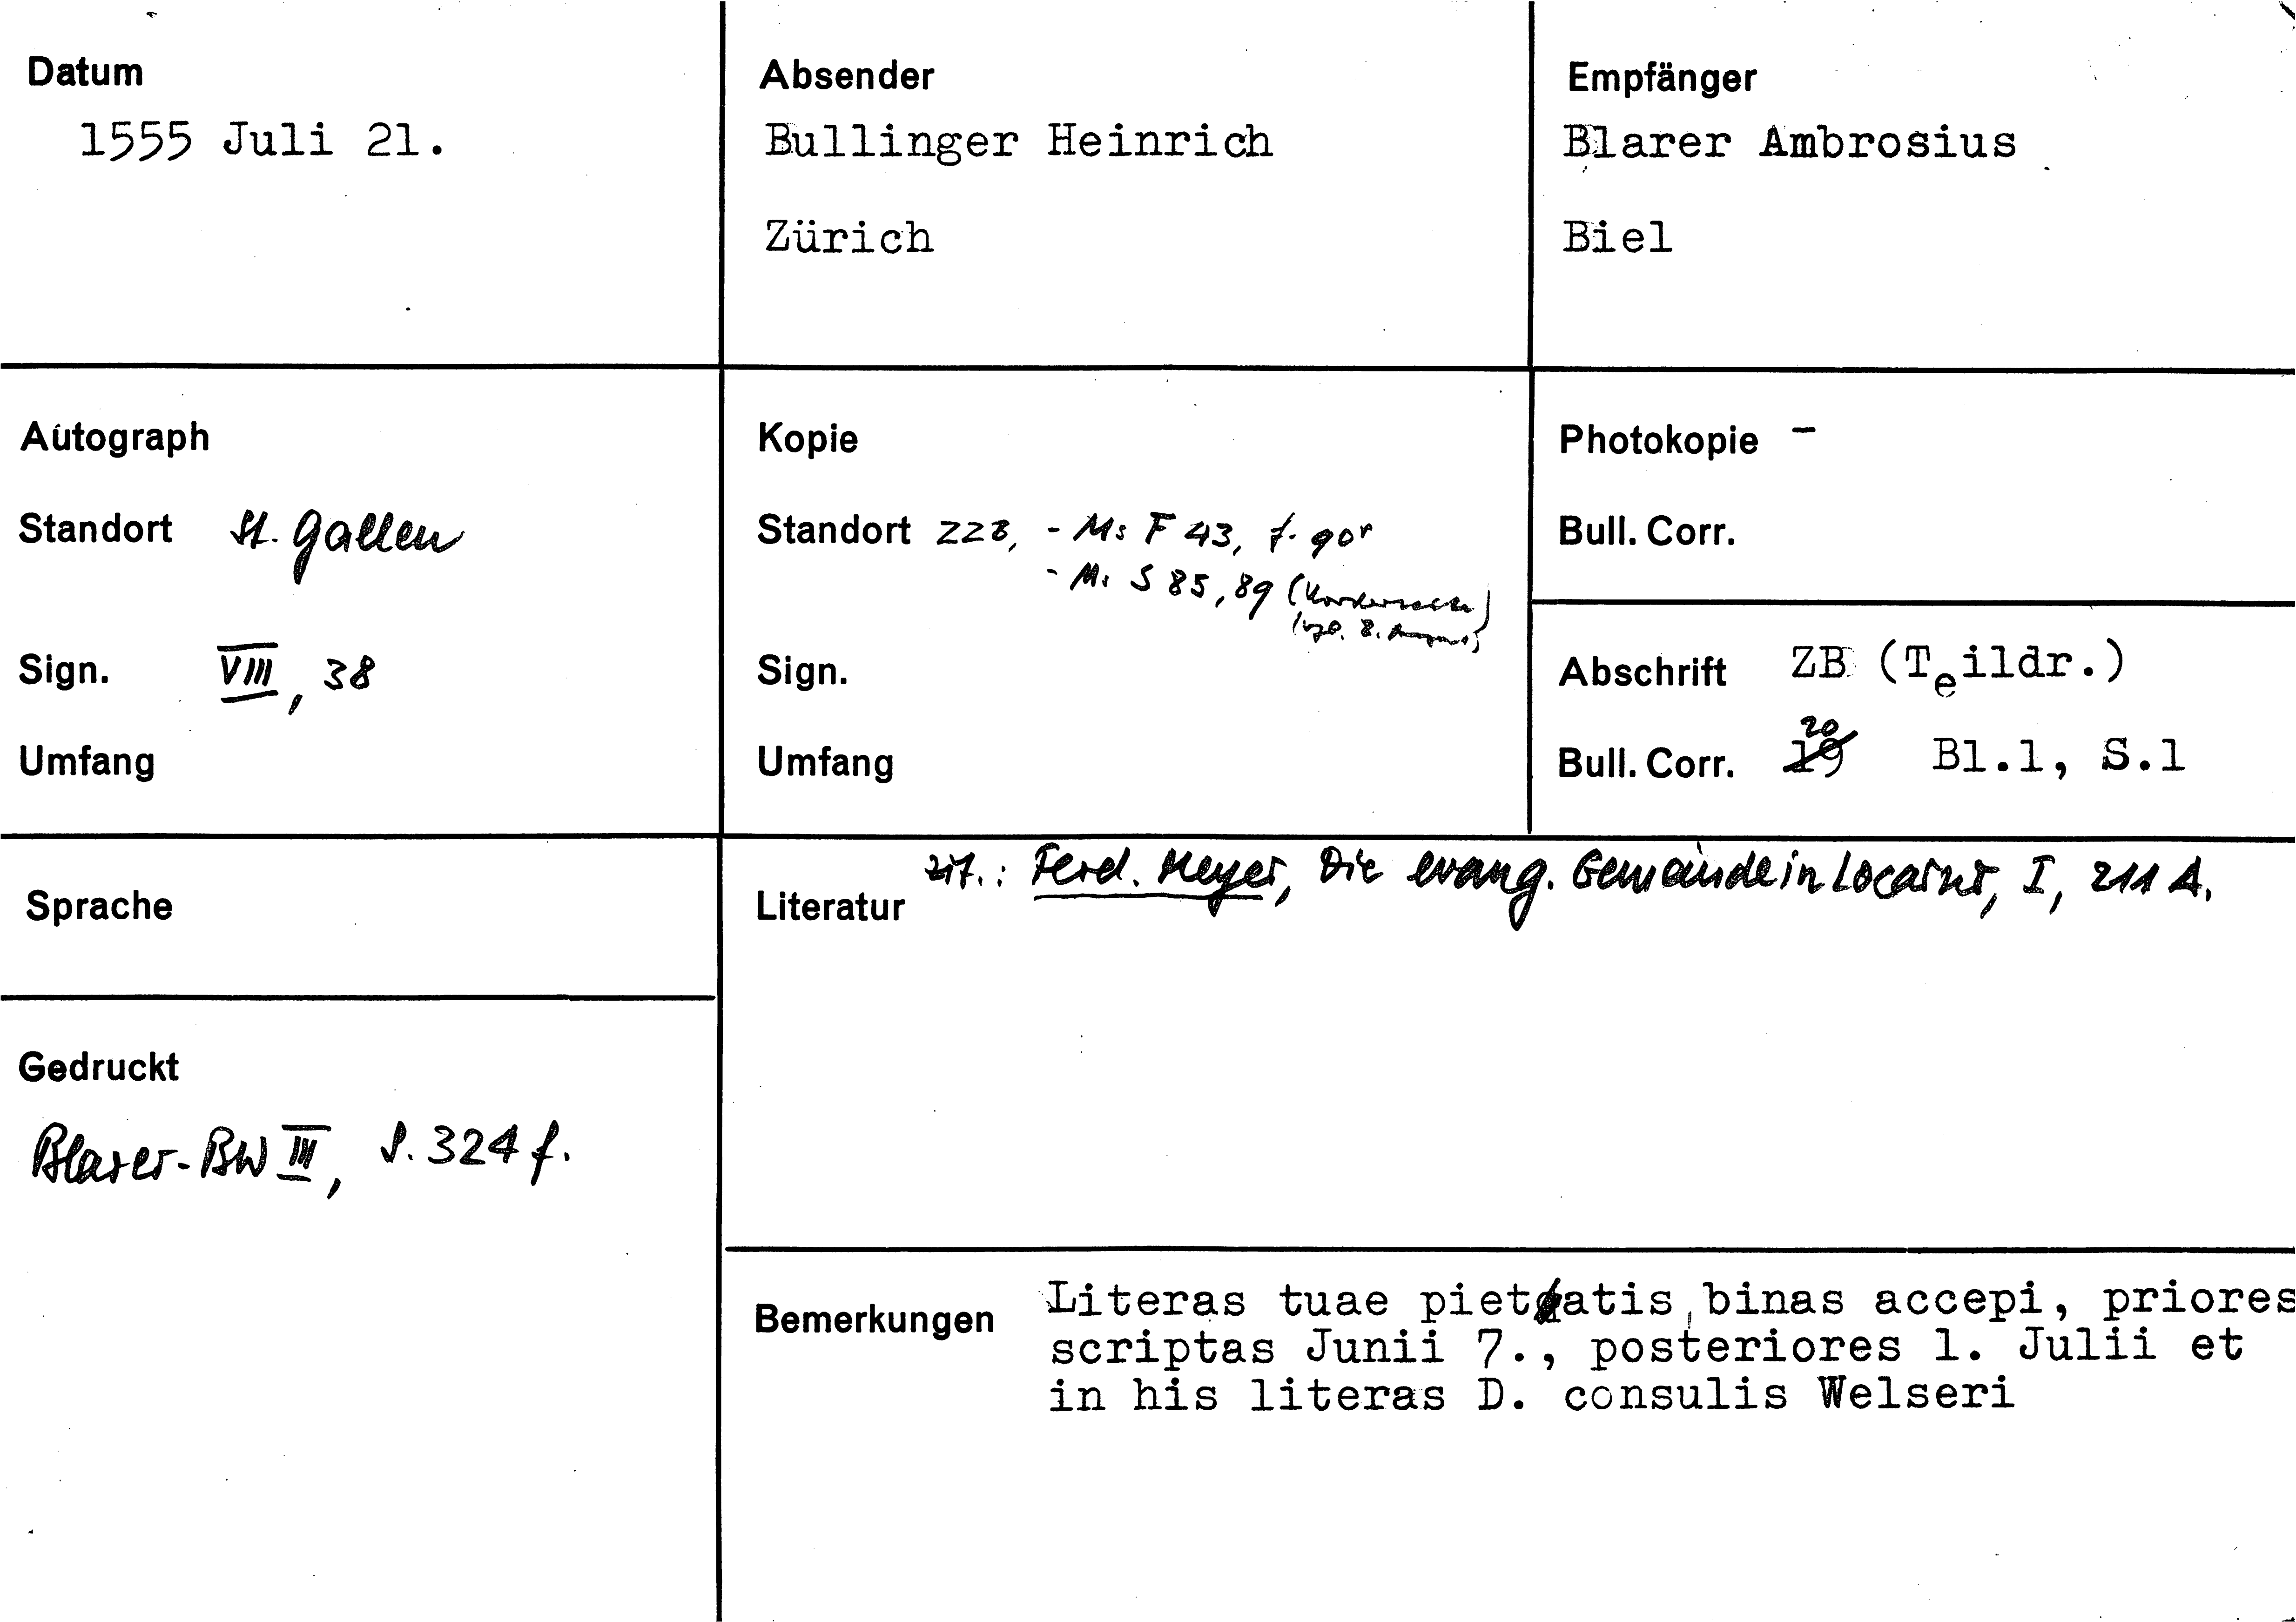 Datum
1555 Juli 21.
Absender
Bullinger Heinrich
Zürich
Empfänger
Blarer Ambrosius
Biel
Autograph
Standort St. Gallen
Sign. VIII, 38
Umfang
Kopie
Standort ZZB, - Ms F 43, f. 90r
- Ms S 85, 89
Sign.
Umfang
Photokopie -
Bull. Corr.
Abschrift ZB (Teildr.)
20
Bull. Corr. 19 Bl.1, S.1
Sprache
Gedruckt
Blarer-BW III, S. 324 f.
zit.: Ferd. Meyer, Die evang. Gemeinde in Locarno, I, 211 A.
Literatur
Bemerkungen Literas tuae pietatis binas accepi, priores
scriptas Junii 7., posteriores 1. Julii et
in his literas D. consulis Welseri